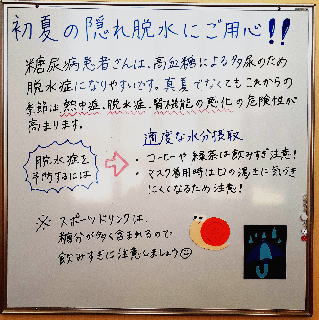 初夏の隠れ脱水にご用心!!
糖尿病患者さんは、高血糖による多尿のため
脱水症になりやすいです。真夏でなくてもこれからの
季節は熱中症、脱水症、腎機能の悪化の危険性が
高まります。
脱水症を
予防するには
適度な水分摂取
・コーヒーや緑茶は飲みすぎ注意!
・マスク着用時は口の渇きに気づき
にくくなるため注意!
※ スポーツドリンクは、
糖分が多く含まれるので
飲みすぎに注意しましょう